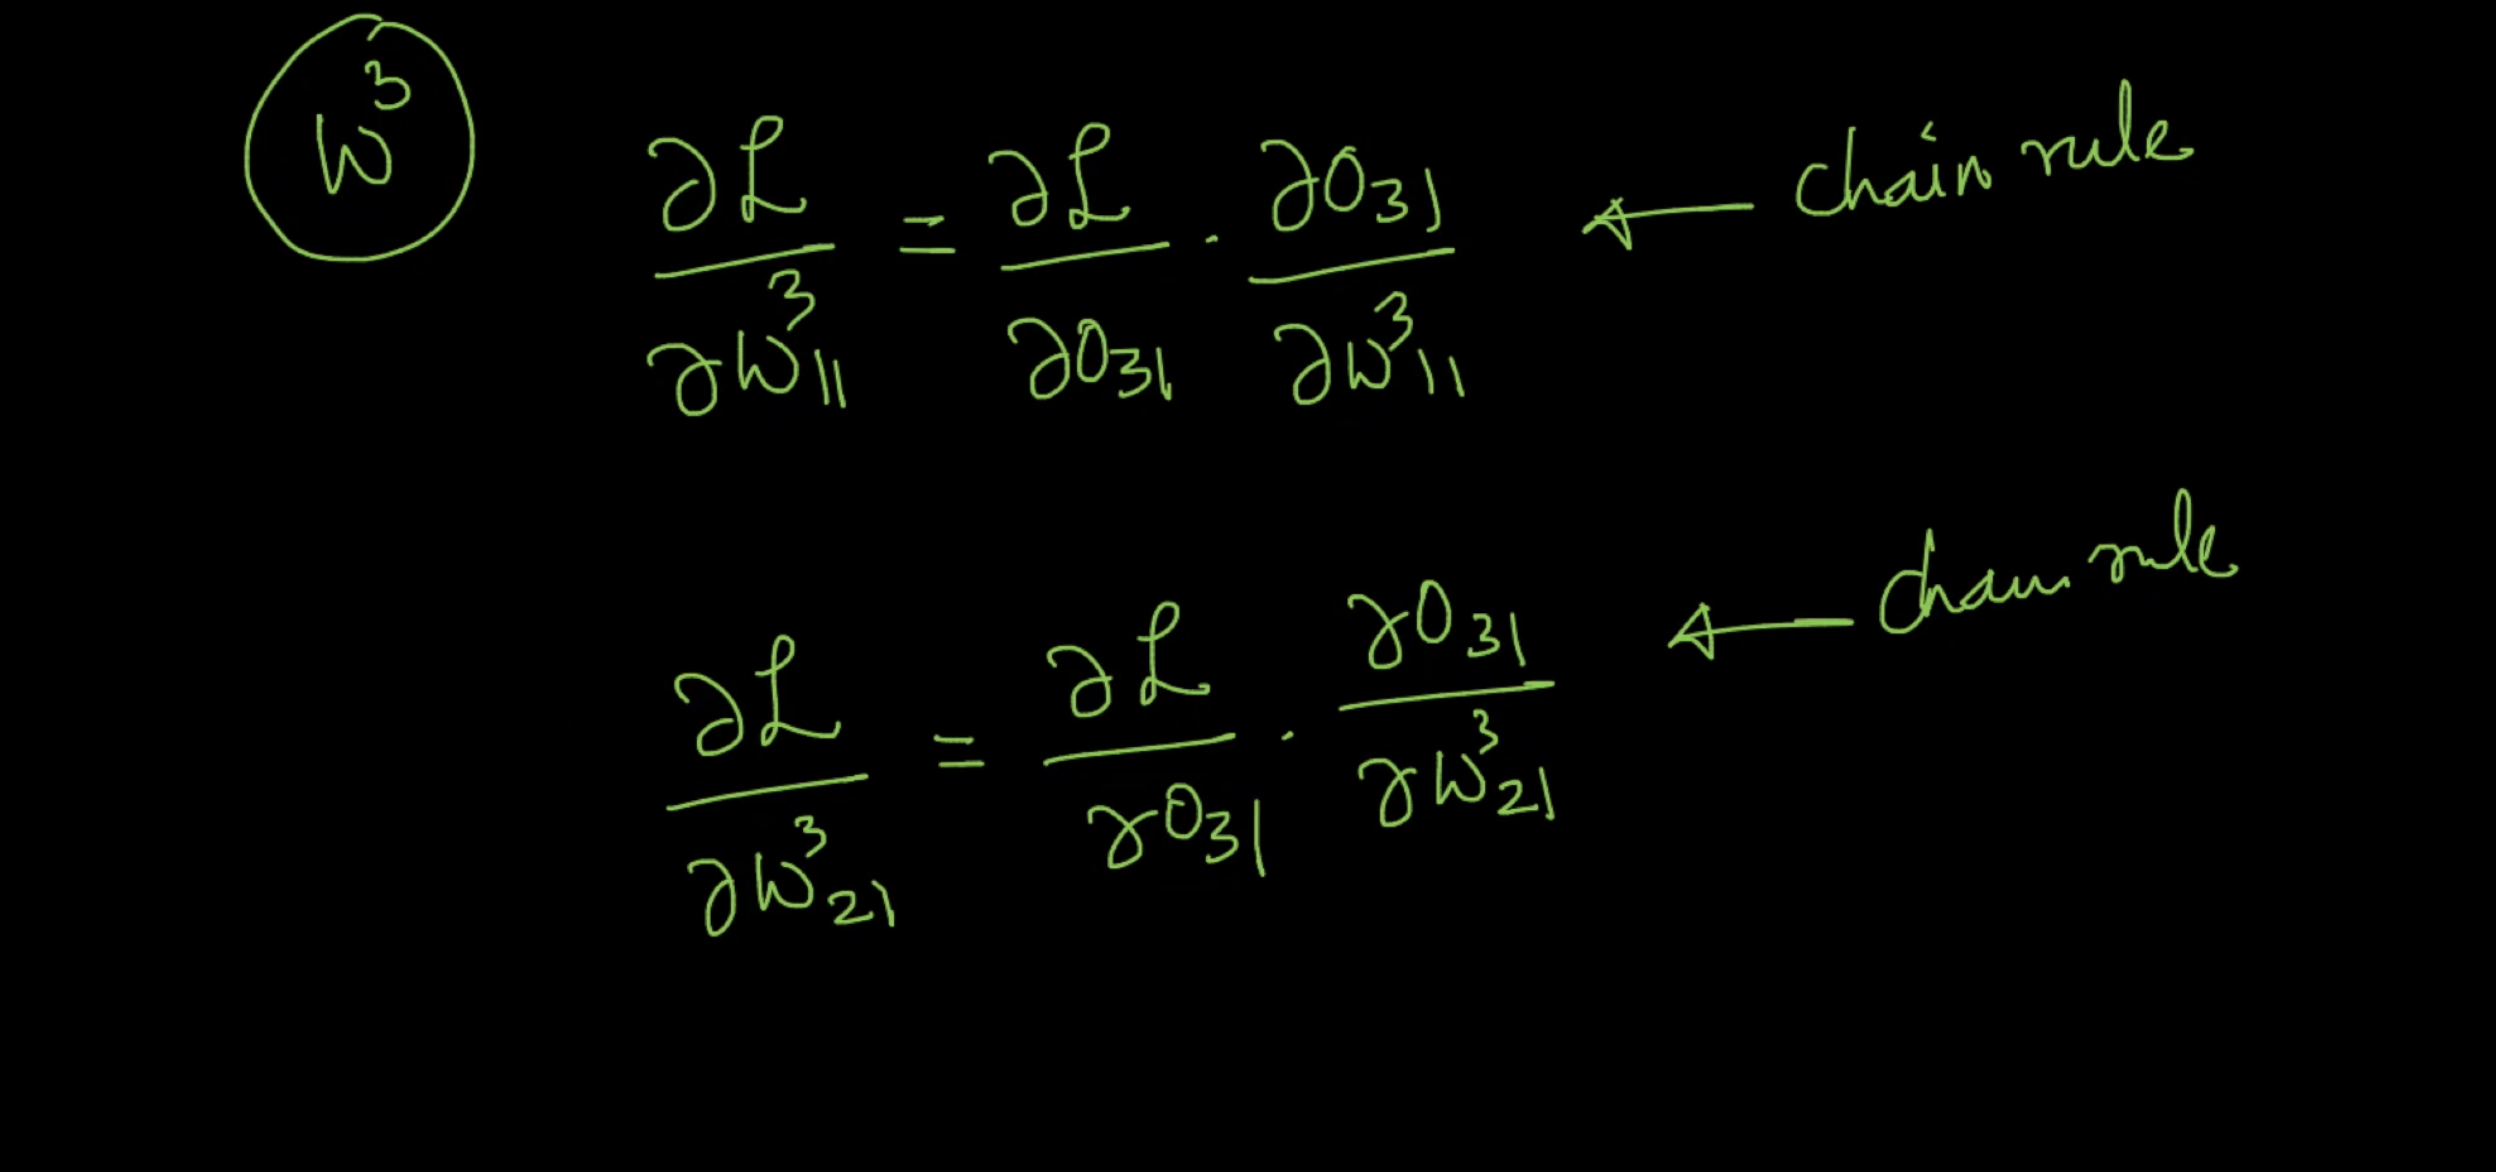 W³
∂L/∂W³₁₁ = ∂L/∂O₃₁ · ∂O₃₁/∂W³₁₁ ← chain rule
∂L/∂W³₂₁ = ∂L/∂O₃₁ · ∂O₃₁/∂W³₂₁ ← chain rule